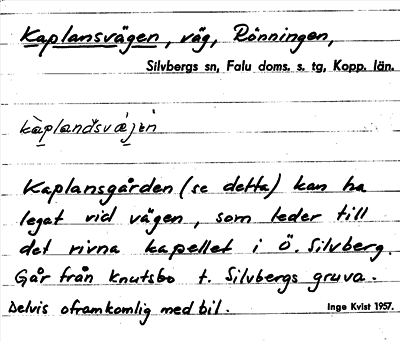 Kaplansvägen, väg, Rönningen,
Silvbergs sn, Falu doms. s. tg, Kopp. län.
kàplandsvæ̀jɛn
Kaplansgården (se detta) kan ha
legat vid vägen, som leder till
det rivna kapellet i Ö. Silvberg.
Går från Knutsbo t. Silvbergs gruva.
Delvis oframkomlig med bil.
Inge Kvist 1957.